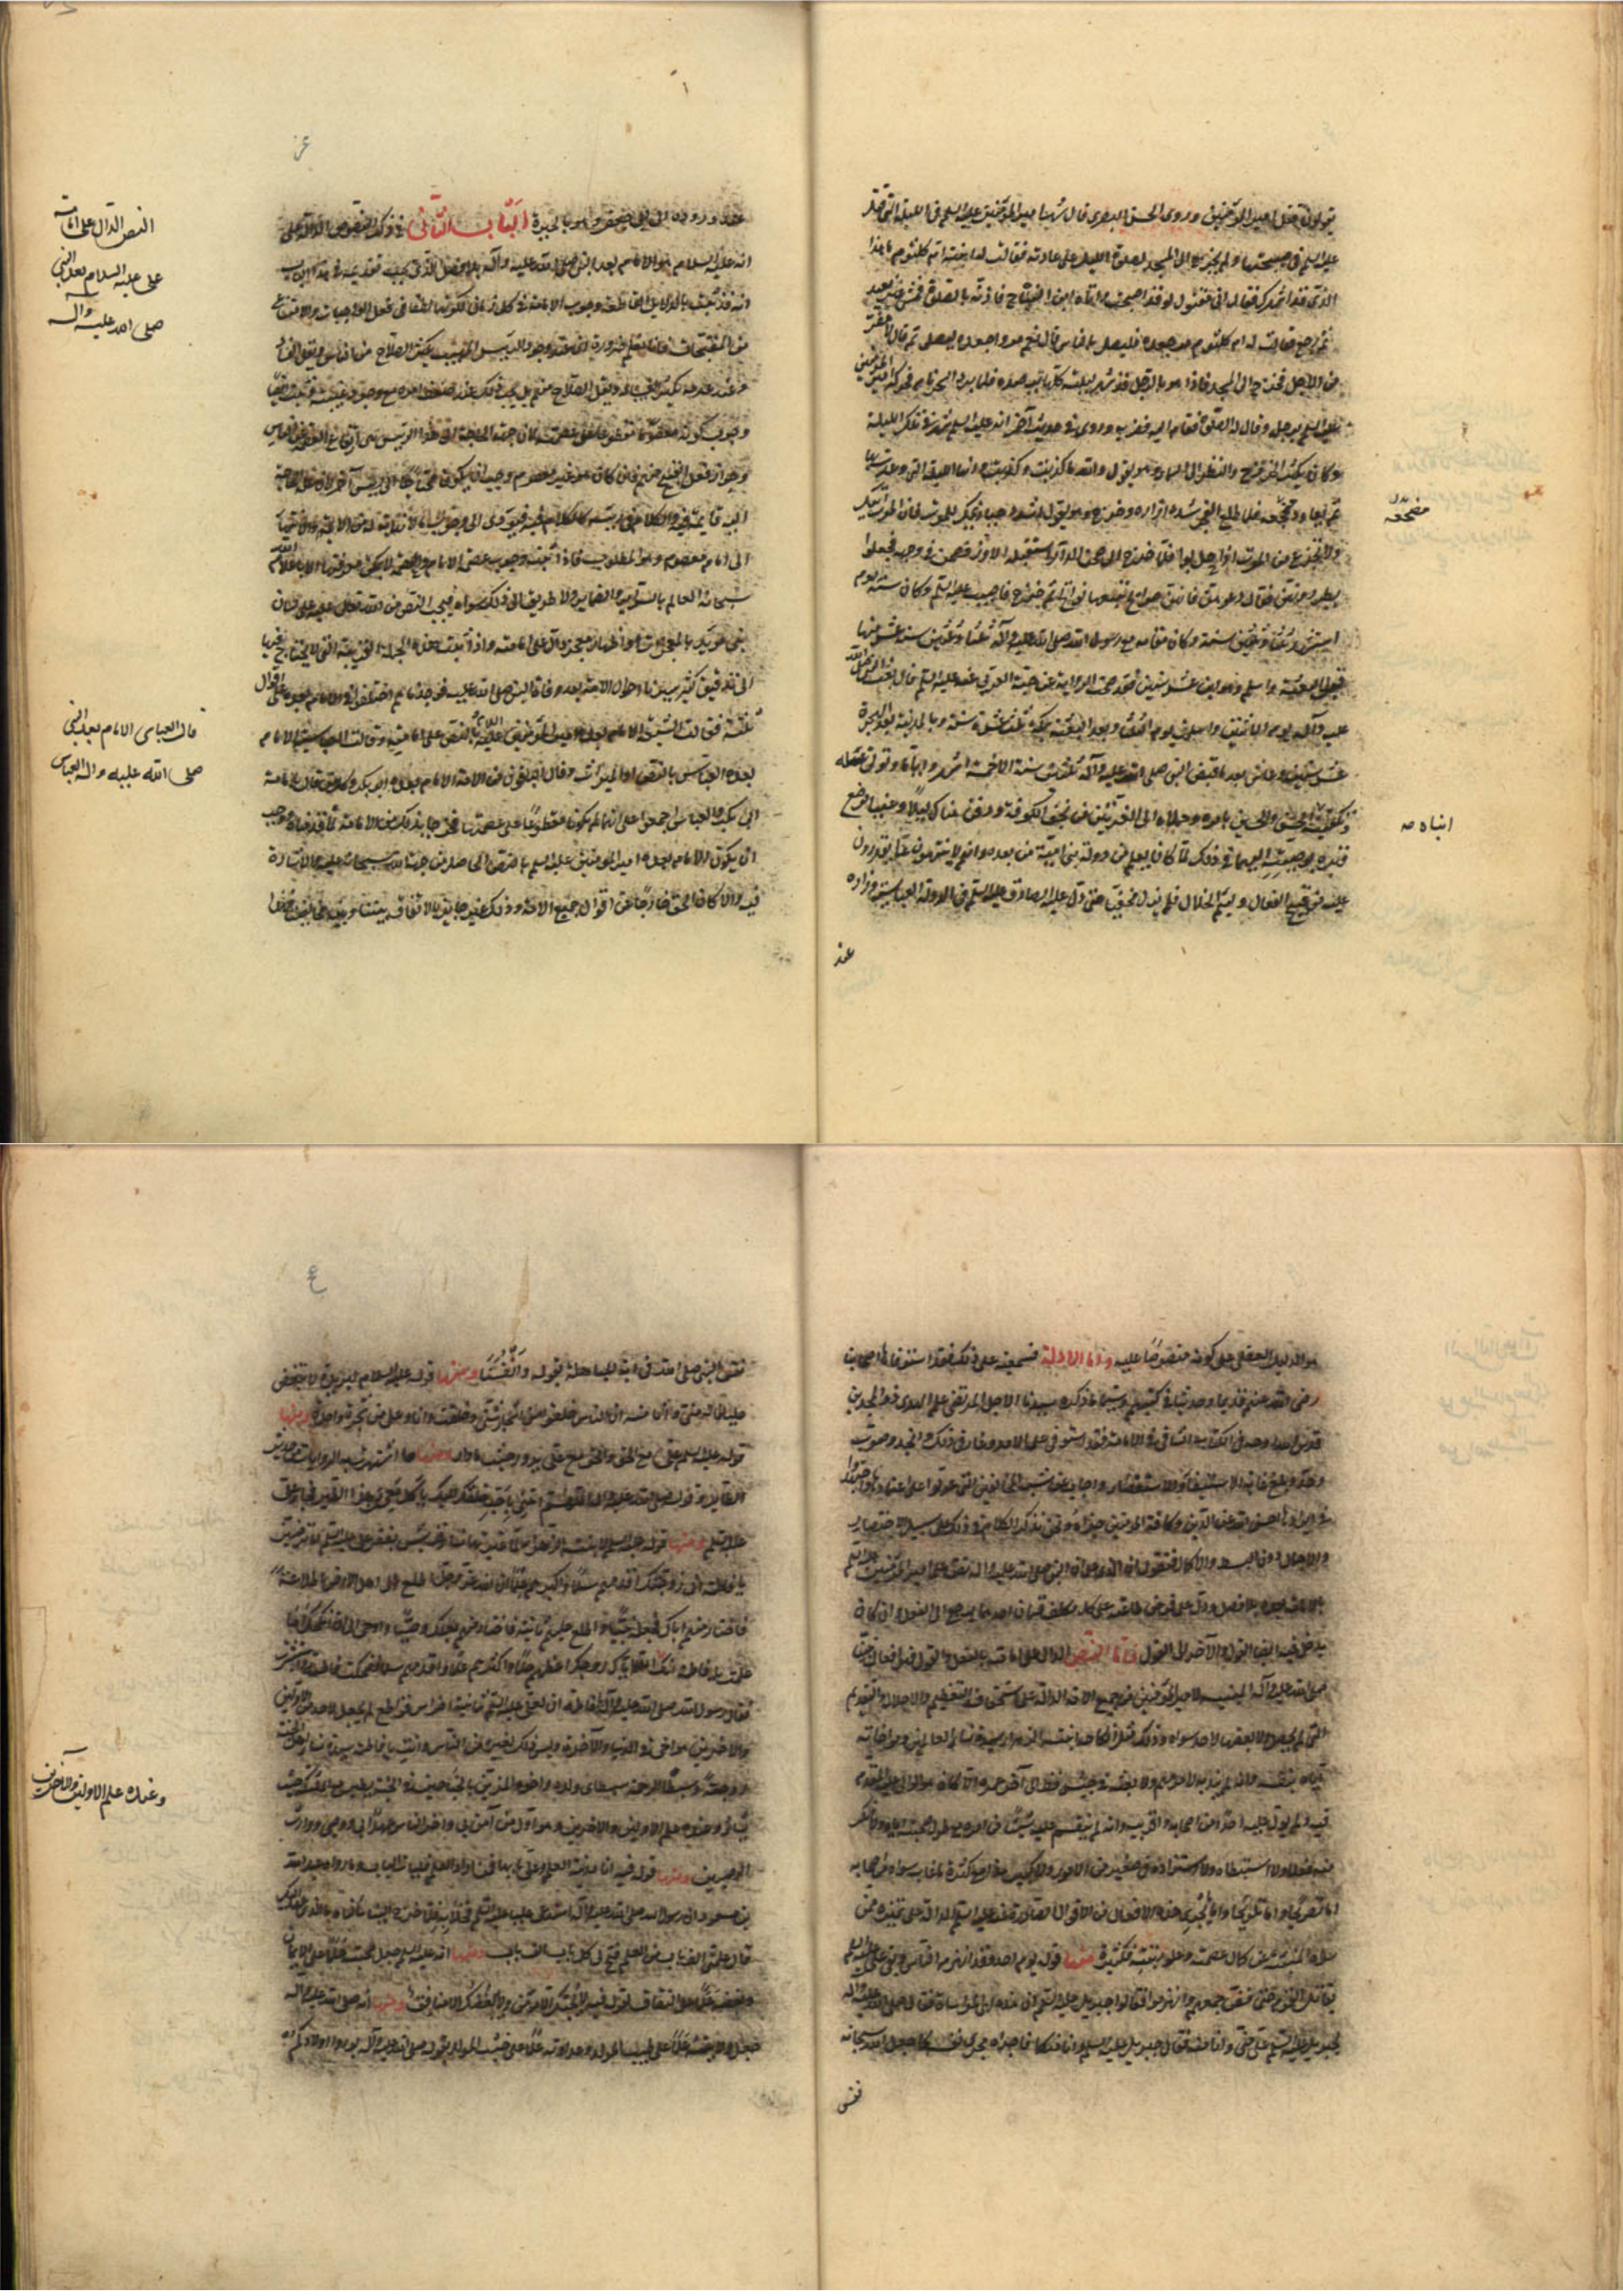 يقولون قتل امير المؤمنين وروى الحسن البصرى قال سهر امير المؤمنين عليه السلم فى الليلة التى قتل
عليه السلم فى صبيحتها ولم يخرج الى المسجد لصلوة الليل على عادته فقالت له ابنته ام كلثوم ما هذا
الذى قد اسهرك فقال انى مقتول لو قد اصبحت واتاه ابن النباح فاذنه بالصلوة فمشى غير بعيد
ثم رجع فقالت له ام كلثوم مر جعدة فليصل بالناس قال نعم مروا جعدة ليصلى ثم قال لا مفر
من الاجل فخرج الى المسجد فاذا هو بالرجل قد سهر ليلته كلها يرصده فلما برد السحر نام فحركه امير المؤمنين
عليه السلم برجله وقال له الصلوة فقام اليه فضربه وروى فى حديث آخر انه عليه السلم سهر فى تلك الليلة
وكان يكثر الخروج والنظر الى السماء وهو يقول والله ما كذبت ولا كذبت وانها الليلة التى وعدت بها
ثم يعاود مضجعه فلما طلع الفجر شد ازاره وخرج وهو يقول اشدد حيازيمك للموت فان الموت لاقيك
ولا تجزع من الموت اذا حل بواديك فلما خرج الى صحن الدار استقبله الاوز فصحن فى وجهه فجعلوا
يطردونهن فقال دعوهن فانهن صوايح تتبعها نوايح ثم خرج فاصيب عليه السلم وكان سنه يوم
استشهد ثلثا وستين سنة وكان مقامه مع رسول الله صلى الله عليه وآله ثلثا وثلثين سنة عشر منها
قبل البعثة واسلم وهو ابن عشر سنين فقد صحت الرواية عن حبة العرنى عنه عليه السلم قال بعث النبى صلى الله
عليه وآله يوم الاثنين واسلمت يوم الثلثا وبعد البعثة بمكة ثلث عشرة سنة وبالمدينة بعد الهجرة
عشر سنين وعاش بعد ما قبض النبى صلى الله عليه وآله ثلثين سنة الا خمسة اشهر واياما وتولى غسله
وتكفينه الحسن والحسين بامره وحملاه الى الغريين من نجف الكوفة ودفن هناك ليلا وعفيا موضع
قبره بوصيته اليهما فى ذلك لما كان يعلم من دولة بنى امية من بعده وانهم لا ينتهون عما يقدرون
عليه من قبيح الفعال ولئيم الخلال فلم يزل مخفيا حتى دل عليه الصادق عليه السلم فى الدولة العباسية وزاره
مضجعه
انباه ص
عند
عند وروده الى ابى جعفر وهو بالحيرة الباب الثانى فى ذكر النصوص الدالة على
انه عليه السلام هو الامام بعد النبى صلى الله عليه وآله بلا فصل الذى يجب تقديمه فى هذا الباب
انه قد ثبت بالدلايل القاطعة وجوب الامامة فى كل زمان لكونها لطفا فى فعل الواجبات والامتناع
من المقبحات فانا نعلم ضرورة ان عند وجود الرييس المهيب يكثر الصلاح من الناس ويقل الفساد
وعند عدمه يكثر الفساد ويقل الصلاح منهم بل يجب ذلك عند ضعف امره مع وجود عينه وثبت ايضا
وجوب كونه معصوما مقطوعا على عصمته لان جهة الحاجة الى هذا الرييس هى ارتفاع العصمة عن الناس
وجواز فعل القبيح منهم فان كان هو غير معصوم وجب ان يكون محتاجا الى رييس آخر لان علة الحاجة
اليه قايمة فيه والكلام فى رييسه كالكلام فيه فيؤدى الى وجوب ما لا نهاية له من الائمة والانتهاء
الى امام معصوم وهو المطلوب فاذا ثبت وجوب عصمة الامام والعصمة لا يمكن معرفتها الا باعلام الله
سبحانه العالم بالسراير والضماير ولا طريق الى ذلك سواه فيجب النص من الله تعالى عليه على لسان
نبى مؤيد بالمعجزات او اظهار معجز دال على امامته واذا ثبتت هذه الجملة القريبة التى لا تحتاج فيها
الى تدقيق كثير سبرنا احوال الامة بعد وفاة النبى صلى الله عليه فوجدناهم اختلفوا فى الامام بعده على اقوال
ثلثة فقالت الشيعة الامام بعده امير المؤمنين عليه السلام بالنص على امامته وقالت العباسية الامام
بعده العباس بالنص او الميراث وقال الباقون من الامة الامام بعده ابو بكر وكل من قال بامامة
ابى بكر والعباس اجمعوا على انهما لم يكونا مقطوعا على عصمتهما فخرجا بذلك من الامامة لما قدمناه فوجب
ان يكون الامام بعده امير المؤمنين عليه السلم بالنص الحاصل من جهة الله سبحانه عليه والاشارة
فيه والا كان الحق خارجا عن اقوال جميع الامة وذلك غير جايز بالاتفاق بيننا وبين مخالفينا
النص الدال على امامة
على عليه السلام بعد النبى
صلى الله عليه وآله
قالت العباسى الامام بعد النبى
صلى الله عليه واله العباس
هو الدليل العقلى على كونه منصوصا عليه واما الادلة السمعية على ذلك فقد استوفاها اصحابنا
رضى الله عنهم قديما وحديثا فى كتبهم لا سيما ما ذكره سيدنا الاجل المرتضى علم الهدى ذو المجدين
قدس الله روحه فى الكتاب الشافى فى الامامة فقد استوفى على الامد وغار فى ذلك وانجد وصوب
وصعد وبلغ غاية الاستيفاء والاستقصاء واجاب عن شبه المخالفين التى عولوا على اعتمادها واجتهدوا
فى ايرادها احسن الله عن الدين وكافة المؤمنين جزاه ونحن نذكر الكلام فى ذلك على سبيل الاختصار
والاجمال دون البسط والاكمال فنقول ان الذى يدل على ان النبى صلى الله عليه واله نص على امير المؤمنين عليه السلم
بالامامة بعده بلا فصل ودل على فرض طاعته على كل مكلف قسمان احدهما يرجع الى الفعل وان كان
يدخل فيه ايضا القول والآخر الى القول فاما النص الدال على امامته بالفعل والقول فهو افعال نبينا
صلى الله عليه وآله المبينة لامير المؤمنين من جميع الامة الدالة على استحقاقه التعظيم والاجلال والتقديم
التى لم تحصل ولا بعضها لاحد سواه وذلك مثل انكاحه ابنته الزهراء سيدة نساء العالمين ومواخاته
اياه بنفسه وانه لم يندبه لامر مهم ولا بعثه فى جيش قط الى آخر عمره الا كان هو الوالى عليه المقدم
فيه ولم يول عليه احدا من اصحابه واقربيه وانه لم ينقم عليه شيئا من امره مع طول صحبته اياه ولا انكر
منه فعلا ولا استبطاه ولا استزاده فى صغير من الامور ولا كبير هذا مع كثرة ما عاتب سواه من اصحابه
اما تصريحا واما تلويحا واما ما يجرى مجرى هذه الافعال من الاقوال الصادرة عنه عليه السلم الدالة على تميزه ممن
سواه المنبئة عن كمال عصمته وعلو رتبته فكثيرة منها قوله يوم احد وقد انهزم الناس وبقى على عليه السلم
يقاتل القوم حتى فض جمعهم وانهزموا فقال جبرييل عليه السلم ان هذه لهى المواساة فقال صلى الله عليه واله
لجبرييل عليه السلم على منى وانا منه فقال جبرييل عليه السلم وانا منكما فاجراه مجرى نفسه كما جعله الله سبحانه
نفس
نفس النبى صلى الله فى آية المباهلة بقوله وانفسنا ومنها قوله عليه السلام لبريدة لا تبغض
عليا فانه منى وانا منه ان الناس خلقوا من اشجار شتى وخلقت انا وعلى من شجرة واحدة ومنها
قوله عليه السلم على مع الحق والحق مع على يدور حيث ما دار ومنها ما اشتهرت به الرواية من حديث
الطاير وقوله صلى الله عليه واله اللهم ائتنى باحب خلقك اليك ياكل معى من هذا الطاير فجاء على
عليه السلم ومنها قوله عليه السلم لابنته الزهراء لما عيرتها نساء قريش بفقر على عليه السلم اما ترضين
يا فاطمة انى زوجتك اقدمهم سلما واكثرهم علما ان الله عز وجل اطلع الى اهل الارض اطلاعة
فاختار منهم اباك فجعله نبيا واطلع عليهم ثانية فاختار منهم بعلك فجعله وصيا واوحى الى ان انكحه اما
علمت يا فاطمة انك لكرامة الله اياك زوجك اعظمهم حلما واكثرهم علما واقدمهم سلما فضحكت فاطمة واستبشرت
فقال رسول الله صلى الله عليه وآله يا فاطمة ان لعلى عليه السلم ثمانية اضراس قواطع لم يجعل لاحد من الاولين
والاخرين هو اخى فى الدنيا والآخرة وليس ذلك لغيره من الناس وانت يا فاطمة سيدة نساء اهل الجنة
زوجته وسبطا الرحمة سبطاى ولده واخوه المزين بالجناحين فى الجنة يطير مع الملايكة حيث
يشاء وعنده علم الاولين والاخرين وهو اول من آمن بى وآخر الناس عهدا بى وهو وصيى ووارث
الوصيين ومنها قوله فيه انا مدينة العلم وعلى بابها فمن اراد العلم فليات الباب وما رواه عبد الله
بن مسعود ان رسول الله صلى الله عليه وآله استدعى عليا عليه السلم فخلا به فلما خرج الينا سالناه ما الذى عهد اليك
قال علمنى الف باب من العلم فتح لى كل باب الف باب ومنها انه عليه السلم جعل محبته علما على الايمان
وبغضه علما على النفاق بقوله فيه لا يحبك الا مؤمن ولا يبغضك الا منافق ومنها انه صلى الله عليه وآله
جعل ولايته علما على طيب المولد وعداوته علما على خبث المولد بقوله صلى الله عليه وآله بوروا اولادكم
وعنده علم الاولين والآخرين